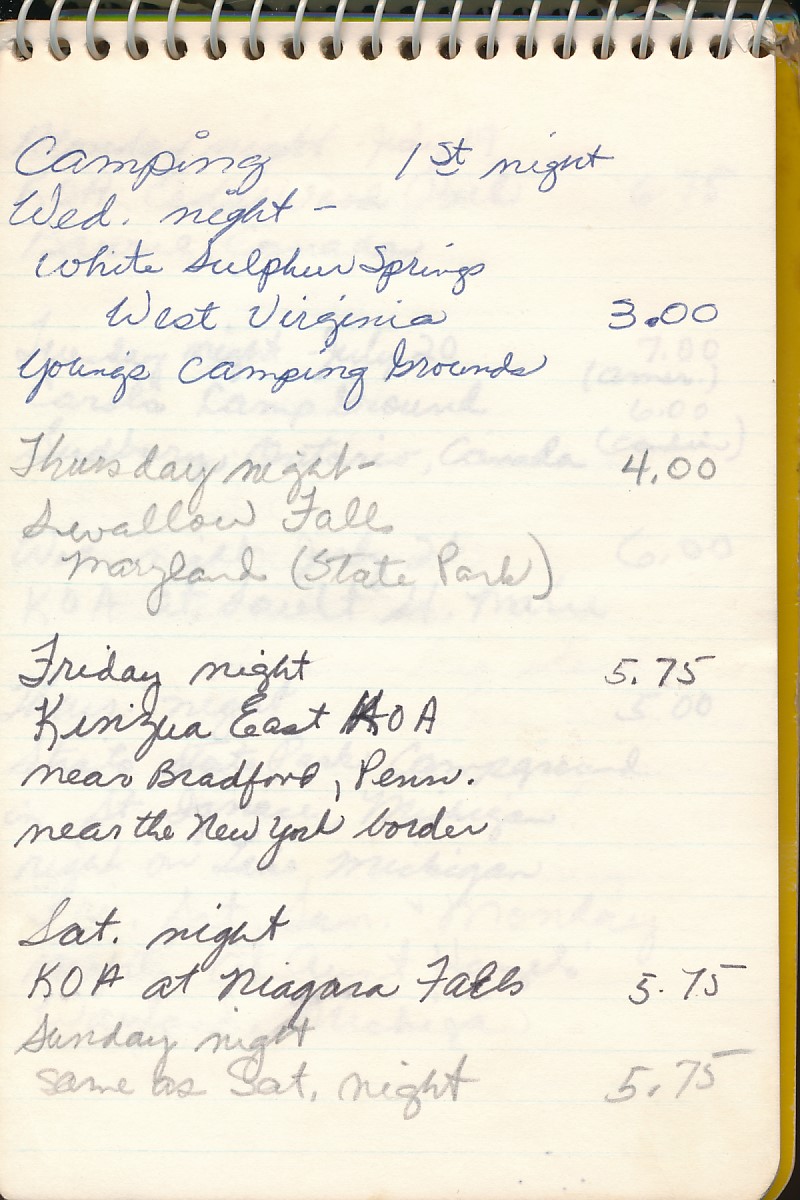 Camping 1st night
Wed. night -
White Sulphur Springs
West Virginia 3.00
Young's Camping Grounds
Thursday night - 4.00
Swallow Falls
Maryland (State Park)
Friday night 5.75
Kinzua East KOA
near Bradford, Penn.
near the New York border
Sat. night
KOA at Niagara Falls 5.75
Sunday night
same as Sat. night 5.75